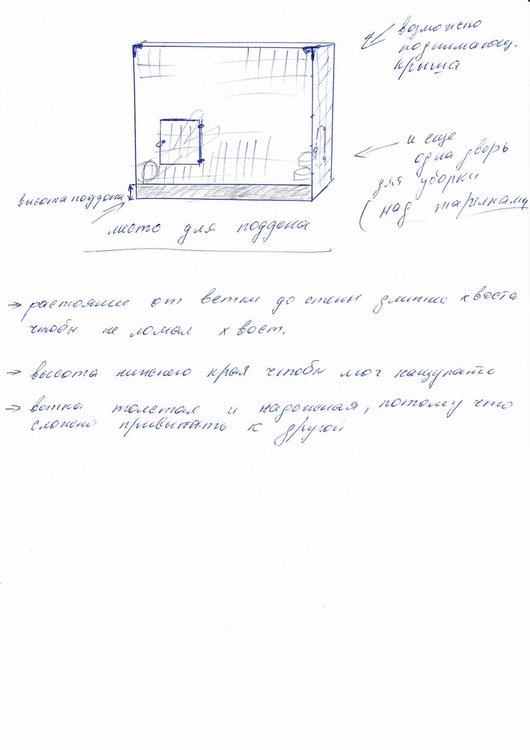 возможно
поднимающ.
крыша
и ещё
одна дверь
для уборки
(над тарелками
высота поддона
место для поддона
→ растояние от ветки до стены длинне хвоста
чтобы не ломал хвост.
→ высота нижнего края чтобы мог нащупать
→ ветка толстая и надёжная, потому что
сложно привыкать к другой